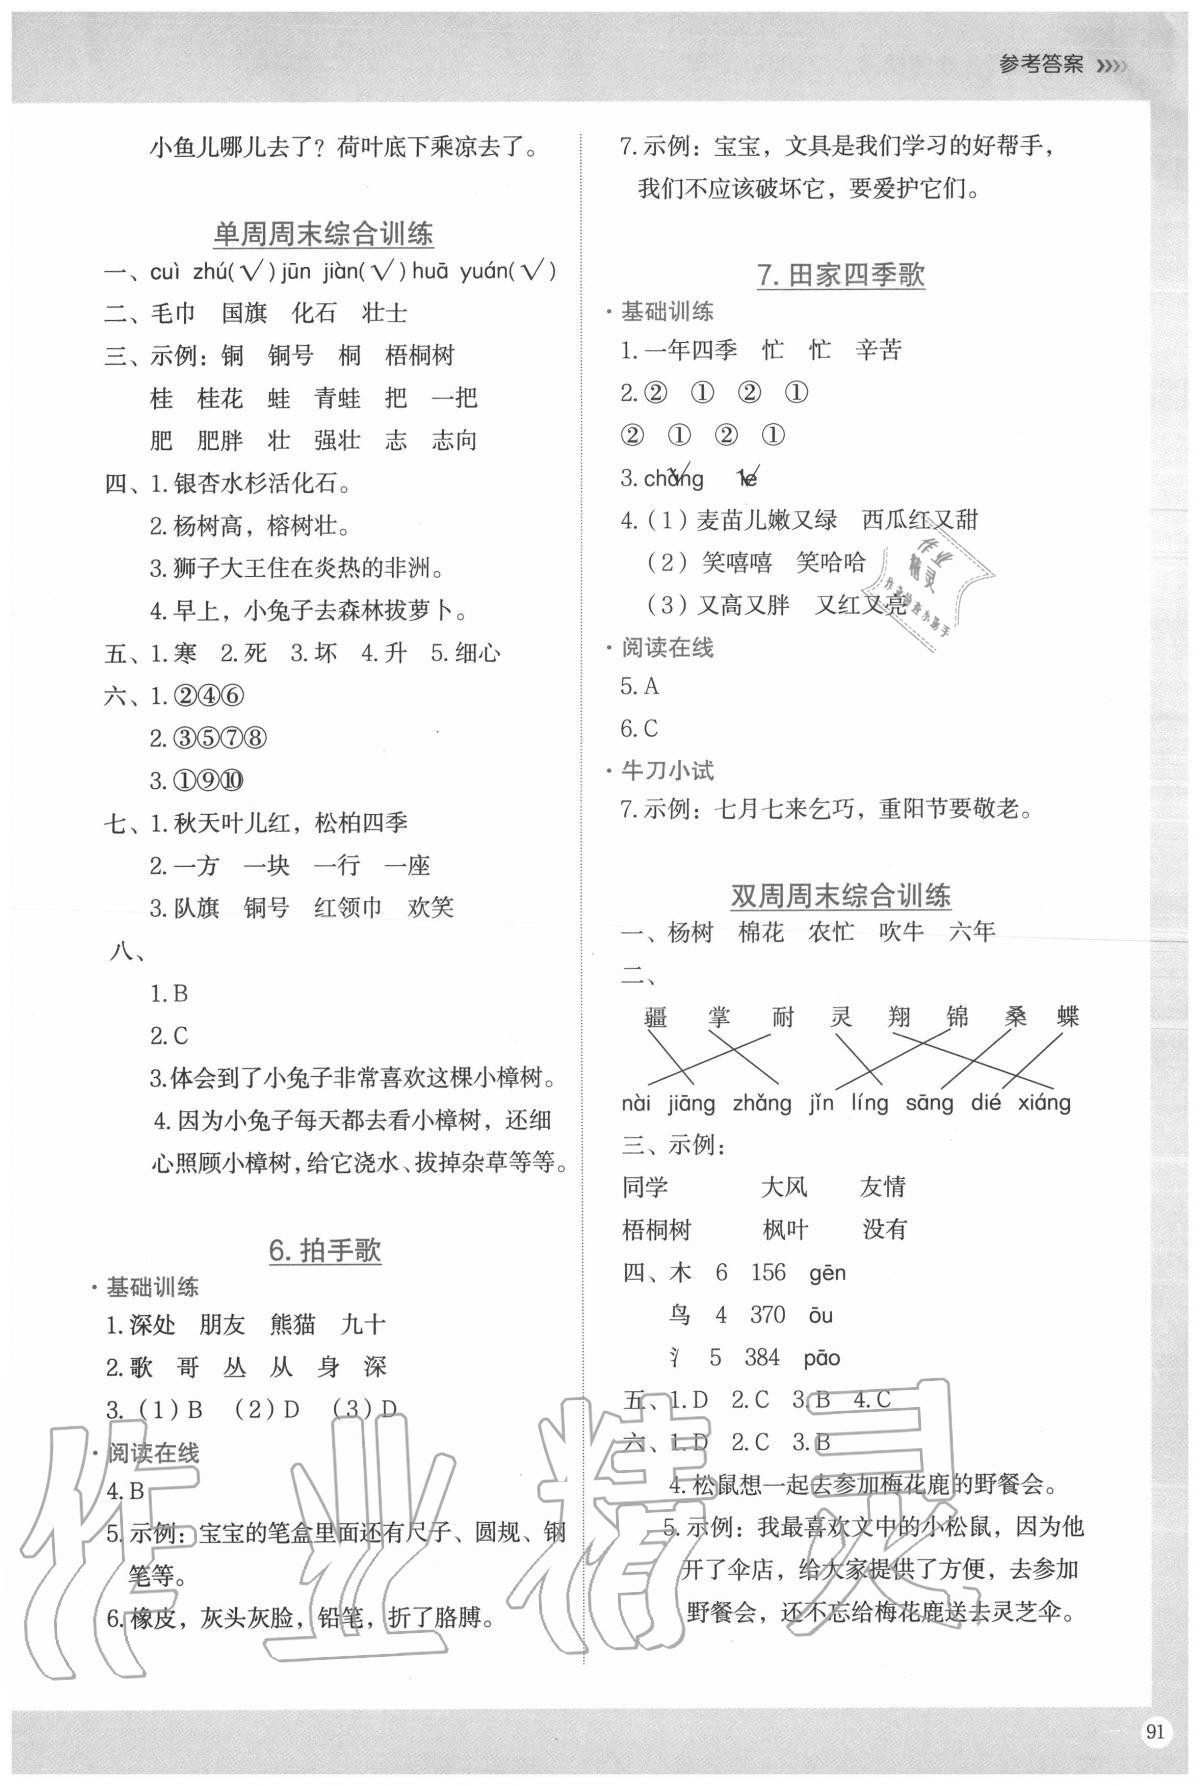 参考答案
小鱼儿哪儿去了？荷叶底下乘凉去了。
单周周末综合训练
一、cuì zhú(√) jūn jiàn(√) huā yuán(√)
二、毛巾 国旗 化石 壮士
三、示例：铜 铜号 桐 梧桐树
桂 桂花 蛙 青蛙 把 一把
肥 肥胖 壮 强壮 志 志向
四、1.银杏水杉活化石。
2.杨树高，榕树壮。
3.狮子大王住在炎热的非洲。
4.早上，小兔子去森林拔萝卜。
五、1.寒 2.死 3.坏 4.升 5.细心
六、1.②④⑥
2.③⑤⑦⑧
3.①⑨⑩
七、1.秋天叶儿红，松柏四季
2.一方 一块 一行 一座
3.队旗 铜号 红领巾 欢笑
八、
1.B
2.C
3.体会到了小兔子非常喜欢这棵小樟树。
4.因为小兔子每天都去看小樟树，还细
心照顾小樟树，给它浇水、拔掉杂草等等。
6.拍手歌
·基础训练
1.深处 朋友 熊猫 九十
2.歌 哥 丛 从 身 深
3.（1）B （2）D （3）D
·阅读在线
4.B
5.示例：宝宝的笔盒里面还有尺子、圆规、钢
笔等。
6.橡皮，灰头灰脸，铅笔，折了胳膊。
7.示例：宝宝，文具是我们学习的好帮手，
我们不应该破坏它，要爱护它们。
7.田家四季歌
·基础训练
1.一年四季 忙 忙 辛苦
2.② ① ② ①
② ① ② ①
3.chǎng √ le √
4.（1）麦苗儿嫩又绿 西瓜红又甜
（2）笑嘻嘻 笑哈哈
（3）又高又胖 又红又亮
·阅读在线
5.A
6.C
·牛刀小试
7.示例：七月七来乞巧，重阳节要敬老。
双周周末综合训练
一、杨树 棉花 农忙 吹牛 六年
二、
疆 掌 耐 灵 翔 锦 桑 蝶
nài jiāng zhǎng jǐn líng sāng dié xiáng
三、示例：
同学 大风 友情
梧桐树 枫叶 没有
四、木 6 156 gēn
鸟 4 370 ōu
氵 5 384 pāo
五、1.D 2.C 3.B 4.C
六、1.D 2.C 3.B
4.松鼠想一起去参加梅花鹿的野餐会。
5.示例：我最喜欢文中的小松鼠，因为他
开了伞店，给大家提供了方便，去参加
野餐会，还不忘给梅花鹿送去灵芝伞。
作业精灵
作业
精灵
91